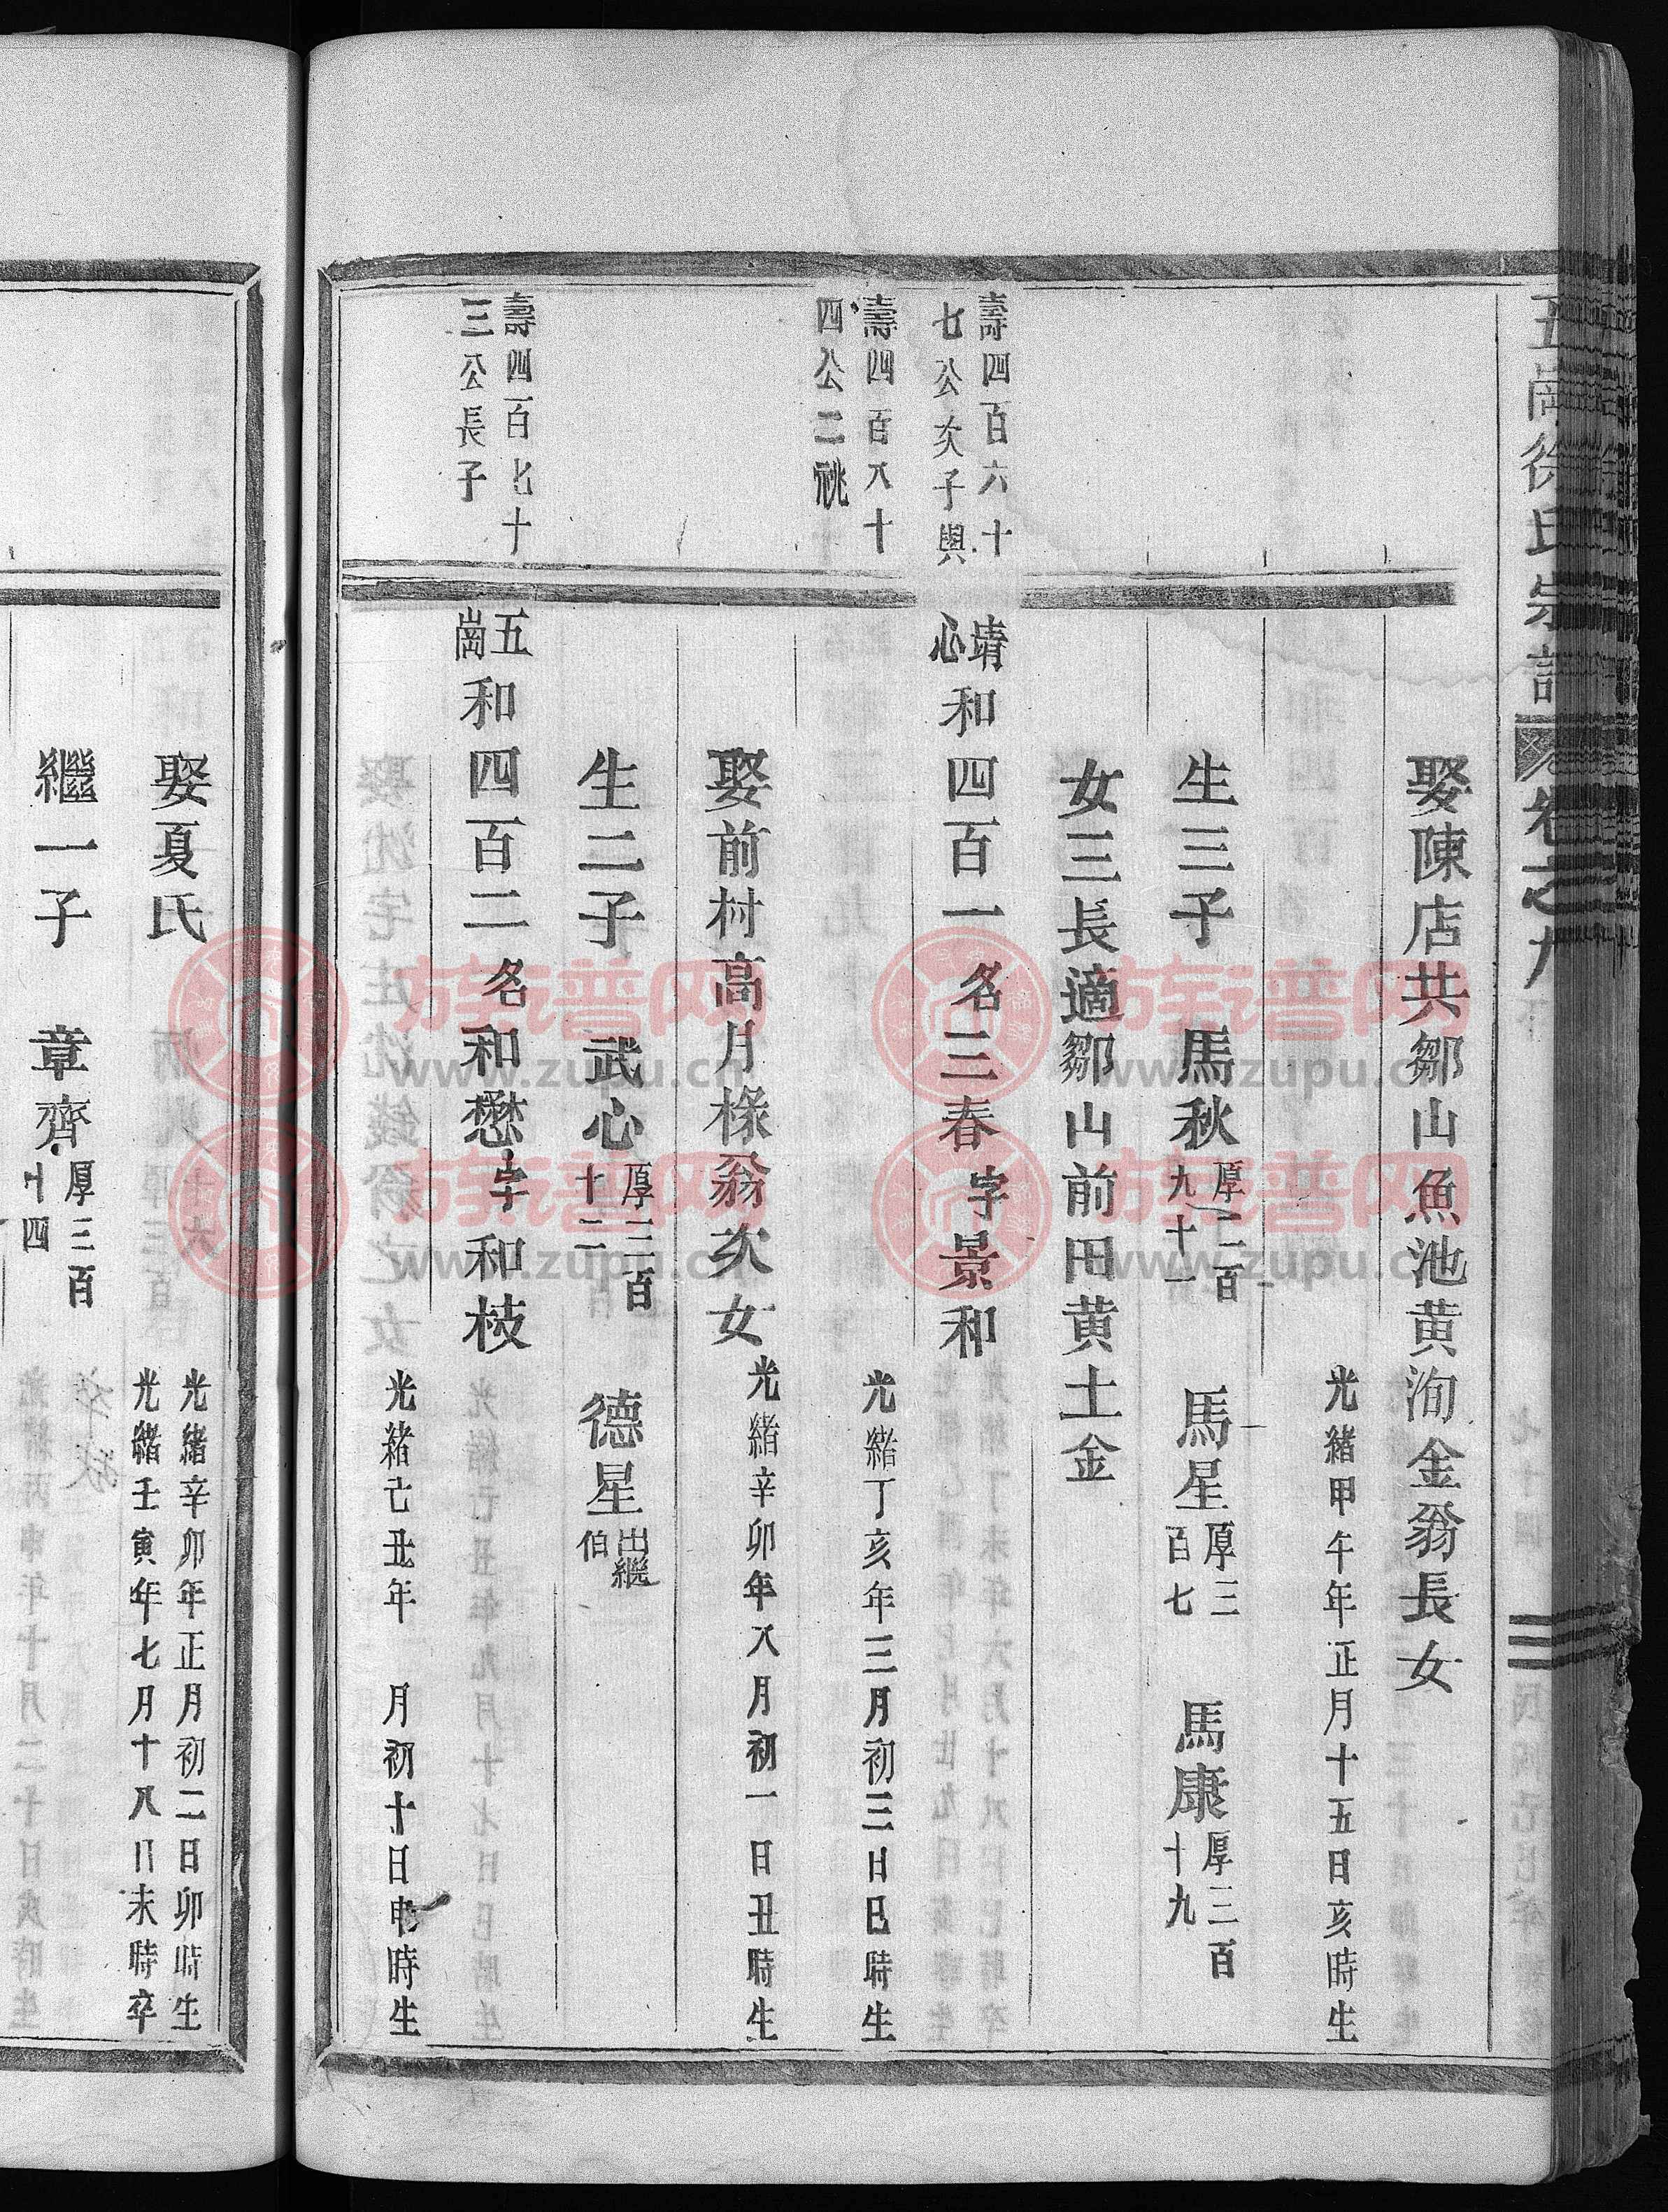 五崗徐氏宗譜 卷之九
娶陳店共鄒山魚池黃洵金翁長女
光緒甲午年正月十五日亥時生
生三子 馬秋 厚二百九十一 馬星 厚三百七 馬康 厚三百十九
女三長適鄒山前田黃土金
壽四百六十七公次子與
壽四百八十四公二祧
靖心 和四百一 名三春 字景和
光緒丁亥年三月初三日巳時生
娶前村高月椽翁次女
光緒辛卯年八月初一日丑時生
生二子 武心 厚三百十二 德星 出繼伯
壽四百七十三公長子
五崗 和四百二 名和懋 字和枝
光緒己丑年 月初十日申時生
娶夏氏
光緒辛卯年正月初二日卯時生
光緒壬寅年七月十八日未時卒
繼一子 章齊 厚三百十四
族谱网
www.zupu.cn
族谱网
www.zupu.cn
族谱网
www.zupu.cn
族谱网
www.zupu.cn